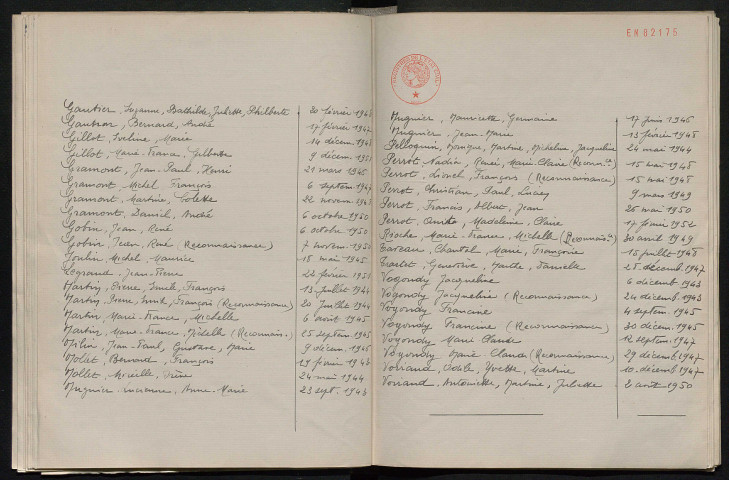 Gautier, Suzanne, Bathilde, Juliette, Philberte 20 février 194
Gautron, Bernard, André 17 février 194
Gillot, Eveline, Marie 14 décem. 194
Gillot, Marie-France, Gilberte 9 décem. 195
Gramont, Jean-Paul, Henri 21 mars 194
Gramont, Michel, François 6 septem. 194
Gramont, Martine, Colette 22 novem. 194
Gramont, Daniel, André 6 octobre 1950
Gobin, Jean, René 6 octobre 1950
Gobin, Jean, René (Reconnaissance) 7 novem. 195
Goulin, Michel, Maurice 18 mai 1945
Legrand, Jean-Pierre 22 février 195
Martin, Pierre, Emile, François 13 juillet 1944
Martin, Pierre, Emile, François (Reconnaissance) 20 juillet 1944
Martin Marie-France, Michelle 6 août 1945
Martin, Marie-France, Michelle (Reconnais.) 25 septem. 1945
Milin, Jean-Paul, Gustave, Marie 9 décem. 194
Mollet, Bernard, François 19 février 194
Mollet, Mireille, 24 mai 1944
Mugnier, Lucienne, Anne-Marie 23 sept. 194
EM82175
Mugnier, Mauricette, Germaine 17 juin 1946
Mugnier, Jean-Marie 13 février 1948
Pelloquin, Monique, Martine, Micheline, Jacqueline 24 mai 1944
Perrot, Nadia, Renée, Marie-Claire (Reconn.ce) 15 mai 1948
Perrot, Lionel, François (Reconnaissance) 15 mai 1948
Perrot, Christian, Paul, Lucien 9 mars 1949
Perrot, Francis, Albert, Jean 26 mai 1950
Perrot, Madeleine, Claire 17 février 1952
Rioche, Marie-France, Michelle (Reconnais.ce) 30 avril 1949
Chantal, Marie, Françoise 16 juillet 1948
Geneviève, Danielle 25 décemb. 1947
Vogondy Jacqueline 6 décemb. 1943
Vogondy Jacqueline (Reconnaissance) 24 décemb. 1943
Vogondy Francine 4 septem. 1945
Vogondy, Francine (Reconnaissance) 30 décem. 1945
Vogondy Marie Claude 12 septem. 1947
Vogondy Marie-Claude (Reconnaissance) 29 décemb. 1947
Vorrand, Odile, Yvette, Martine 10 décemb 1947
Vorrand, Antoinette, Martine, Juliette 2 août 1950